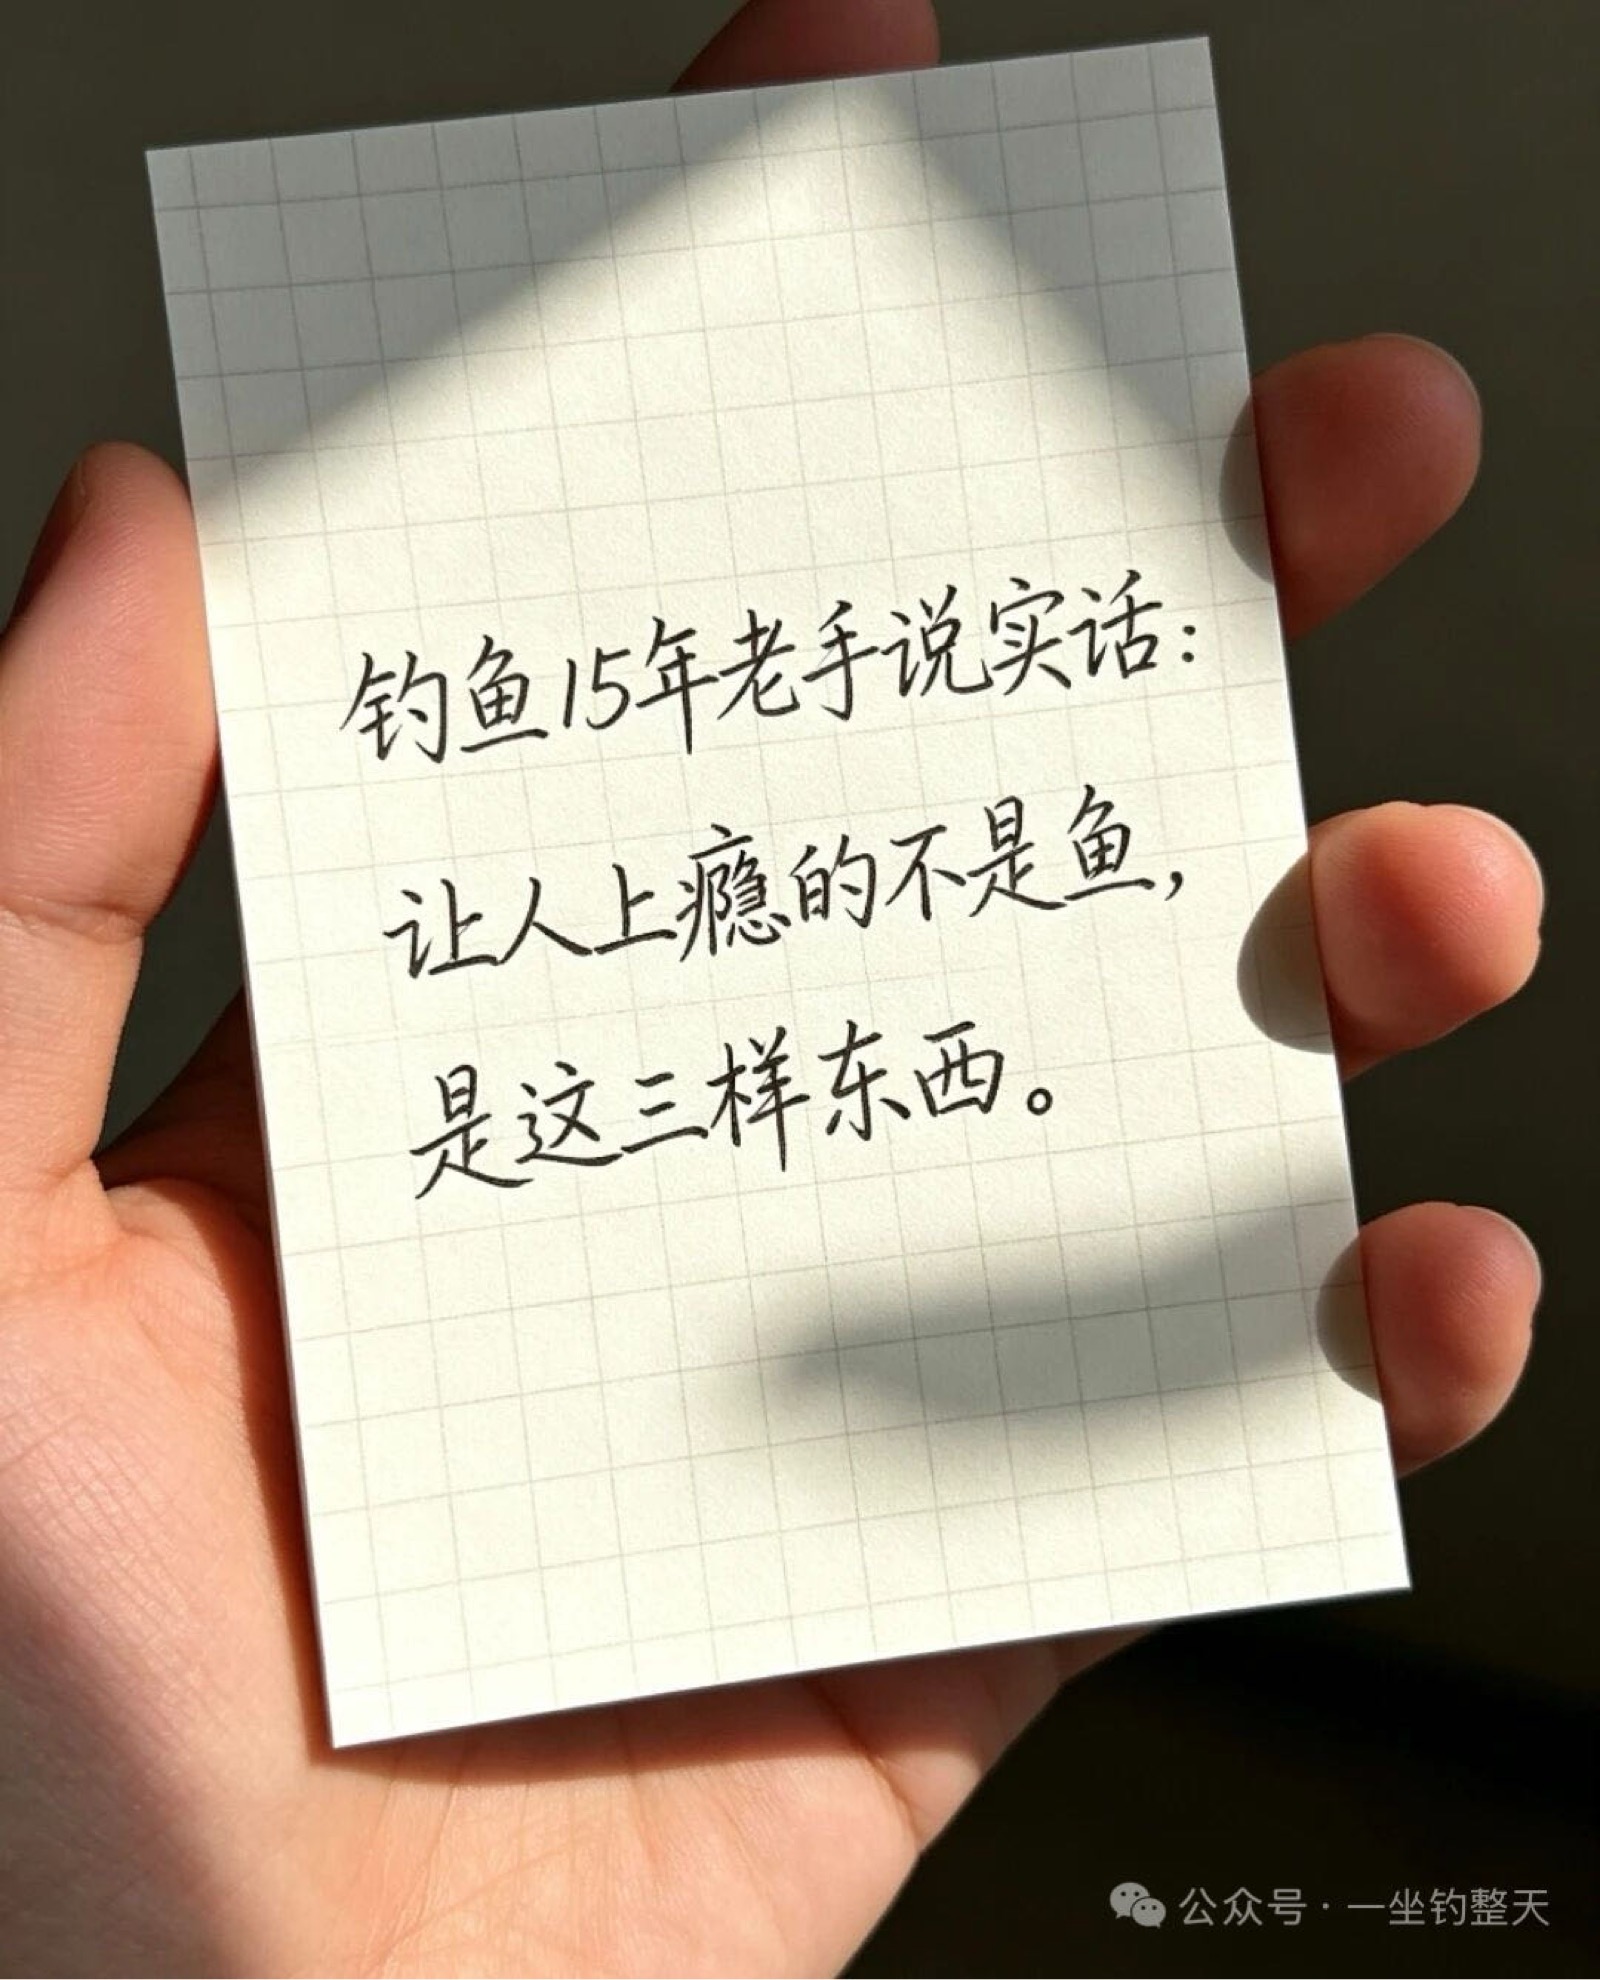 钓鱼15年老手说实话：
让人上瘾的不是鱼，
是这三样东西。
公众号·一坐钓整天